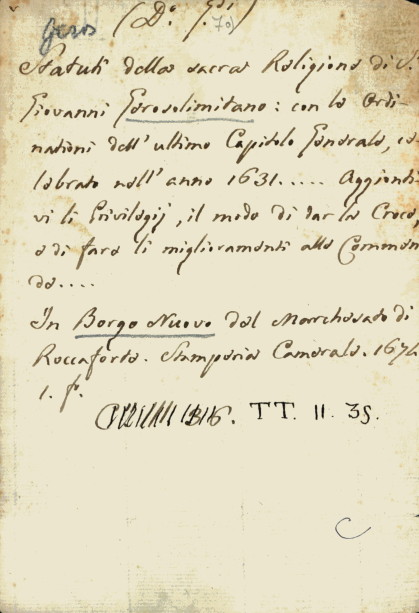 Geros
(D.° G.si 70)
Statuti della sacra Religione di S.
Giovanni Gerosolimitano: con le Ordi-
nationi dell' ultimo Capitolo Generale, ce-
lebrato nell' anno 1631..... Aggionti
vi li Privilegij, il modo di dar la Croce,
e di fare li miglioramenti alle Commen
de....
In Borgo Nuovo del Marchesato di
Roccaforte. Stamperia Camerale. 1674
1. f.
TT. II. 35.
C